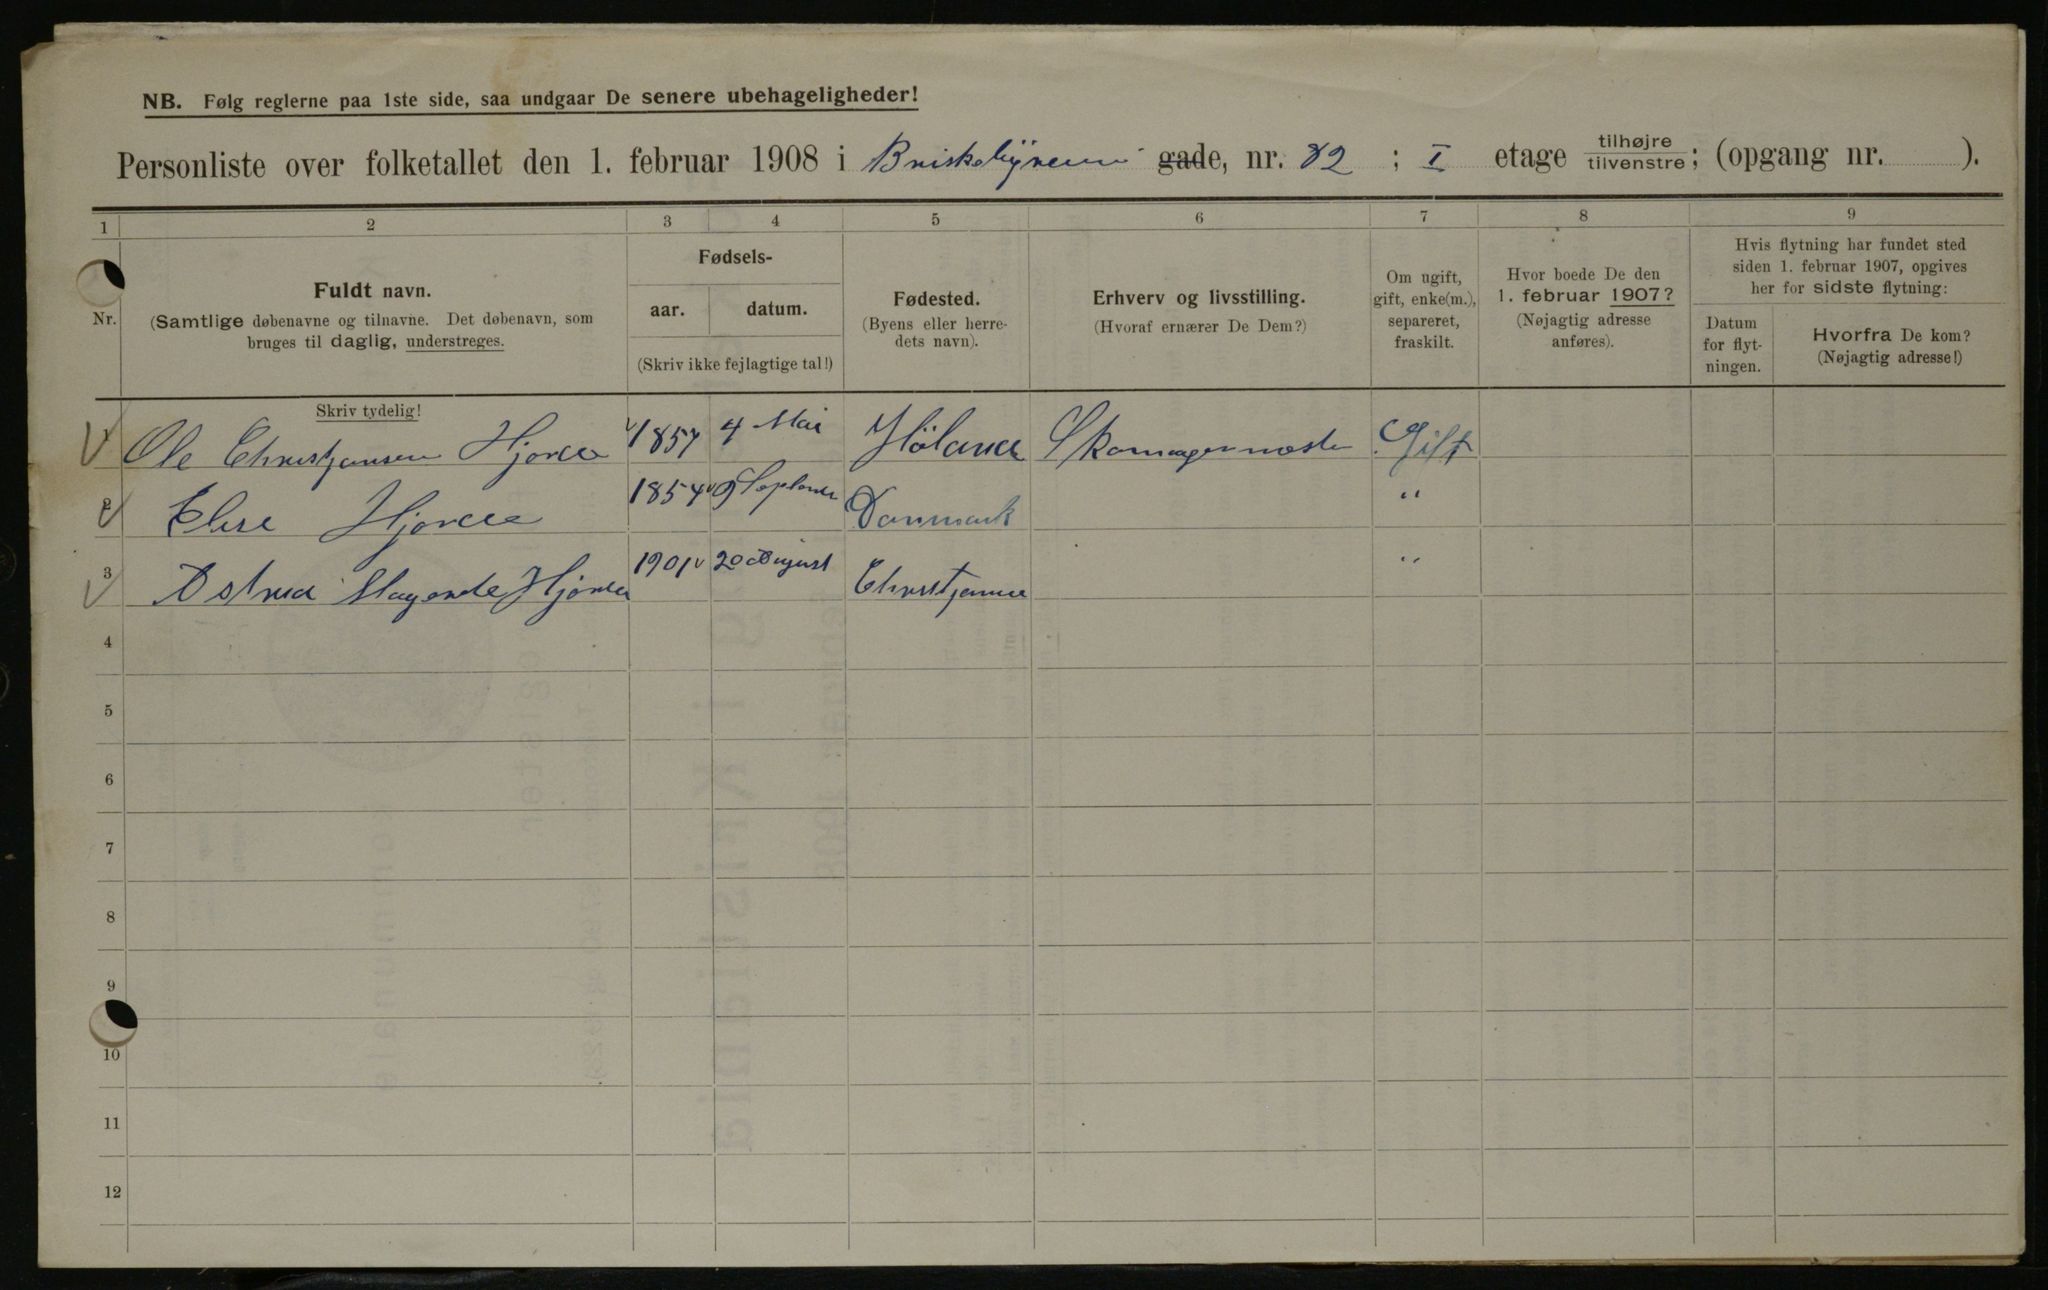 NB. Følg reglerne paa 1ste side, saa undgaar De senere ubehageligheder!
Personliste over folketallet den 1. februar 1908 i Briskebyveien gade, nr. 82 ; I etage tilhøjre/tilvenstre; (opgang nr. ).
1 2 3 4 5 6 7 8 9
Nr.
Fuldt navn.
(Samtlige døbenavne og tilnavne. Det døbenavn, som
bruges til daglig, understreges.
Fødsels-
aar. datum.
(Skriv ikke fejlagtige tal!)
Fødested.
(Byens eller herre-
dets navn).
Erhverv og livsstilling.
(Hvoraf ernærer De Dem?)
Om ugift,
gift, enke(m.),
separeret,
fraskilt.
Hvor boede De den
1. februar 1907?
(Nøjagtig adresse
anføres).
Hvis flytning har fundet sted
siden 1. februar 1907, opgives
her for sidste flytning:
Datum
for flyt-
ningen.
Hvorfra De kom?
(Nøjagtig adresse!)
Skriv tydelig!
1 Ole Christjansen 1857 4 Mai Høland Skomagermester Gift
2 Elise 1854 9 September Danmark "
3 Astrid 1901 20 August Christjania "
4
5
6
7
8
9
10
11
12